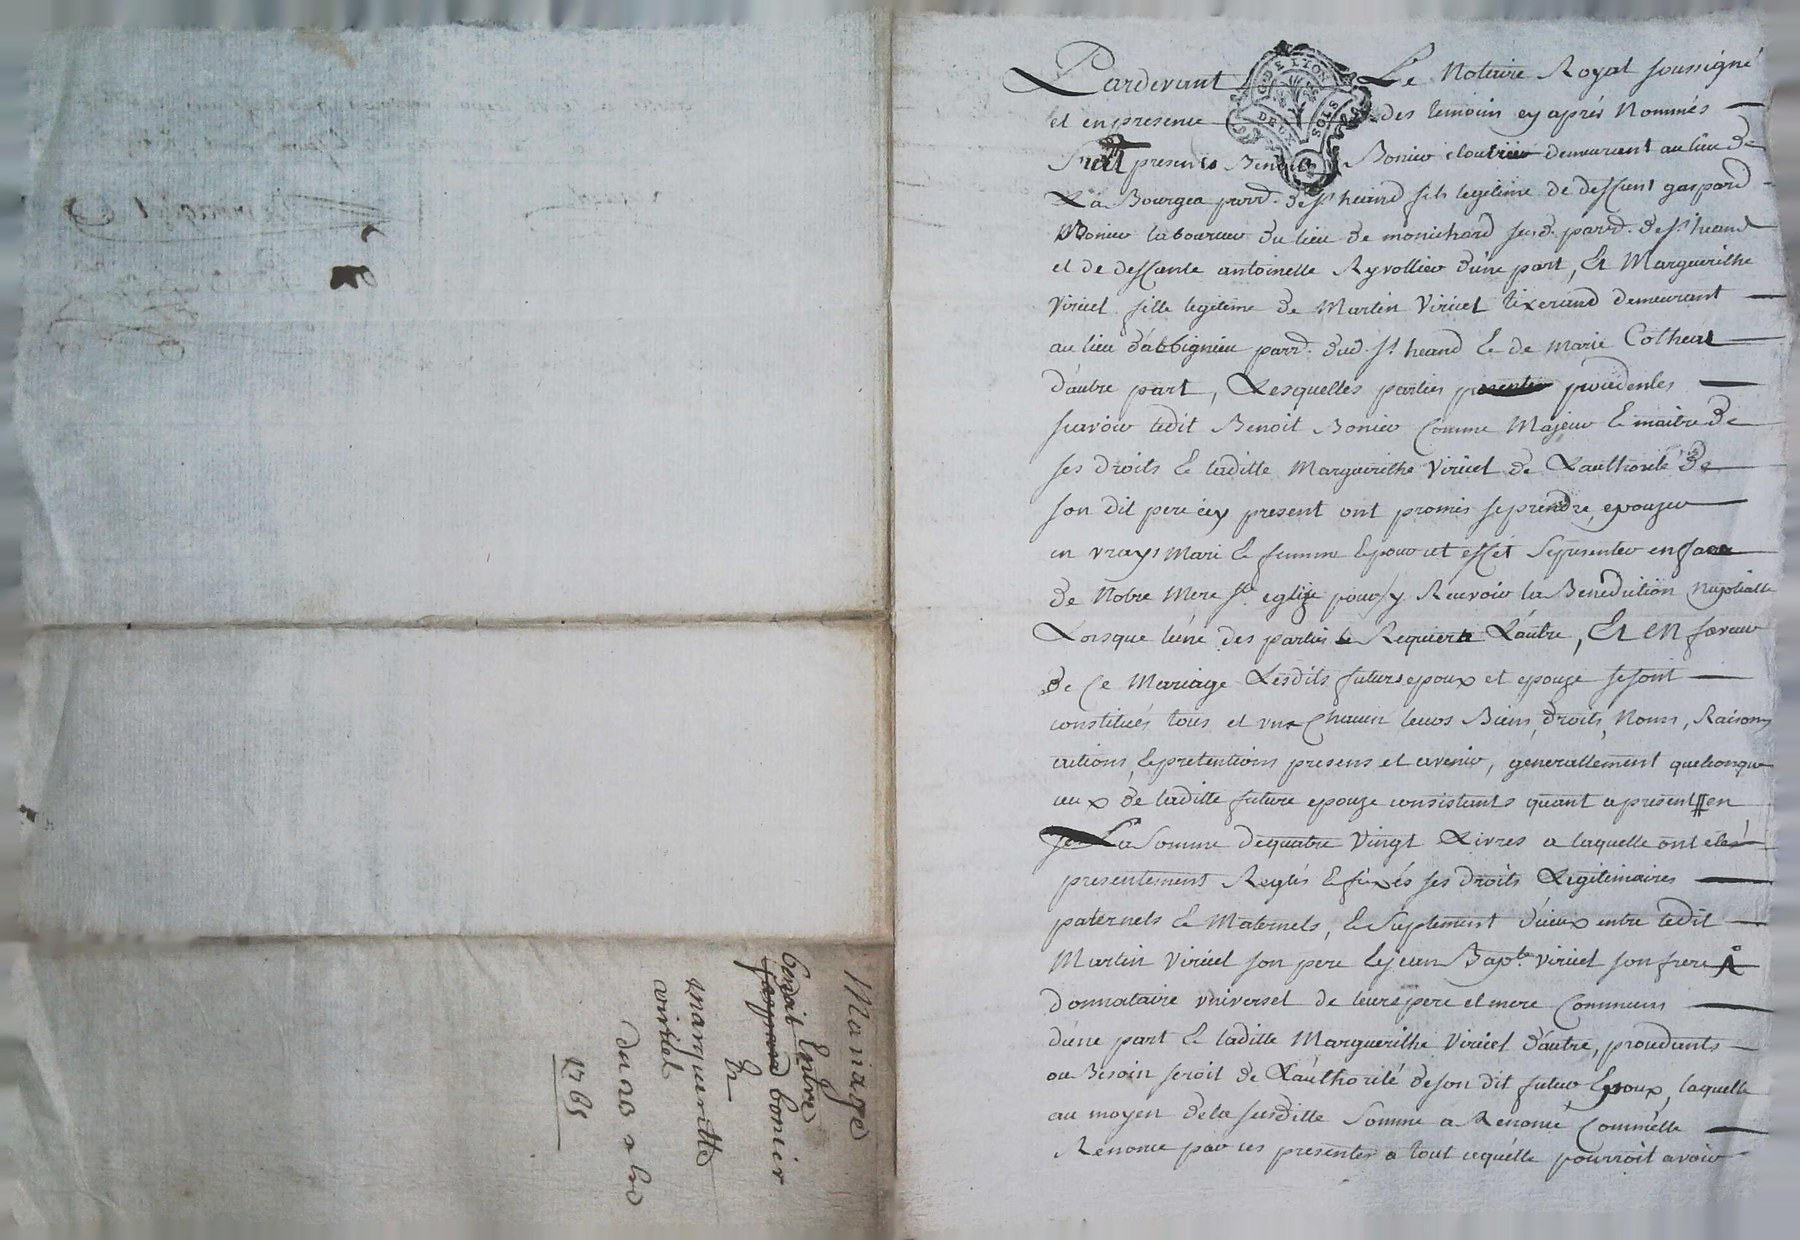 Mariage
Entre
benoit
gaspard bonier
Et
margueritte
viricel
du 20 abre
1765
G. DE LYON
DEUX SOLS
Pardevant Le Notaire Royal soussigné
et en presence des temoins cy aprés Nommés
presents Benoit Bonier cloutier demeurant au lieu de
La Bourgea parr.d de St heand fils legitime de deffunt gaspard
Bonier laboureur du lieu de monichard susd. parr.d de St heand
et de deffante antoinelle Ryvollier d'une part, Et Marguerithe
Viricel fille legitime de Martin Viricel tixerand demeurant
au lieu d'abbignieu parr.d dud. St heand & de Marie Colheul
d'autre part, Lesquelles parties procedentes
scavoir ledit Benoit Bonier Comme Majeur & maitre de
ses droits & laditte Marguerithe Viricel de L'authorité de
son dit pere icy present ont promis se prendre, epouzer
en vrays Mari & femme & pour cet effet Se presenter en face
de Notre Mere Ste eglize pour sy Recevoir la Benediction Nuptialle
Lorsque l'une des parties le Requierra L'autre, Et EN faveur
de Ce Mariage Lesdits futurs epoux et epouze se sont
constitués tous et un Chacun leurs Biens, droits, Noms, Raisons
actions, & pretentions presens et avenir, generallement quelconque
ceux de laditte future epouze consistants quant a present en
La Somme de quatre Vingt Livres a laquelle ont étés
presentement Reglés & fixés ses droits Legitimaires
paternels & Maternels, & Suplement d'iceux entre ledit
Martin Viricel son pere & jean Bapte Viricel son frere
donnataire universel de leurs pere et mere Communs
d'une part & laditte Marguerithe Viricel d'autre, procedants
ou Besoin seroit de L'authorité de son dit futur Epoux, laquelle
au moyen de la susditte Somme a Renoncé Comm'elle
Renonce par ces presentes a tout ce qu'elle pourroit avoir